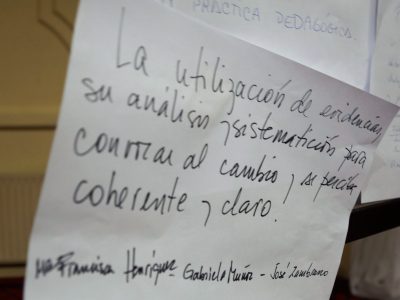 PRÁCTICA PEDAGÓGICA.
La utilización de evidencias,
su análisis y sistematición para
convocar al cambio y se perciba
coherente y claro.
Ma Francisca Henríquez Gabriela Muñoz - José Zambrano